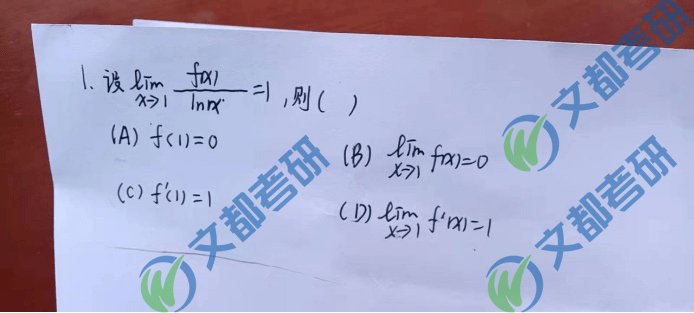 1. 设 lim x→1 f(x)/lnx =1, 则( )
(A) f(1)=0
(B) lim x→1 f(x)=0
(C) f'(1)=1
(D) lim x→1 f'(x)=1
文都考研
文都考研
文都考研
文都考研